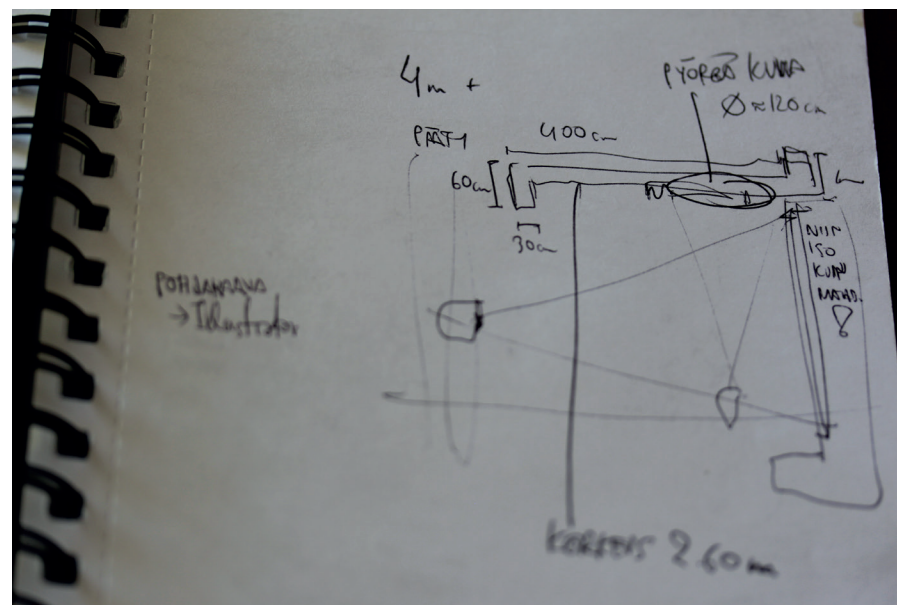 4m +
PYÖREÄ KUVA
Ø ≈ 120 cm
PÄÄTY
400 cm
60cm
30cm
NIIN
ISO
KUVA
MAHD.
POHJAKUVA
→ Illustrator
KORKEUS 2.60 m